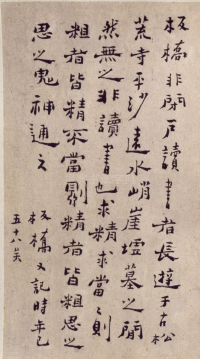 板橋非閉戶讀書者長遊于古松
荒寺平沙遠水峭崖墟墓之間
然無之非讀書也求精求當〻則
粗者皆精不當則精者皆粗思之
思之鬼神通之 板橋又記時年已
五十八矣